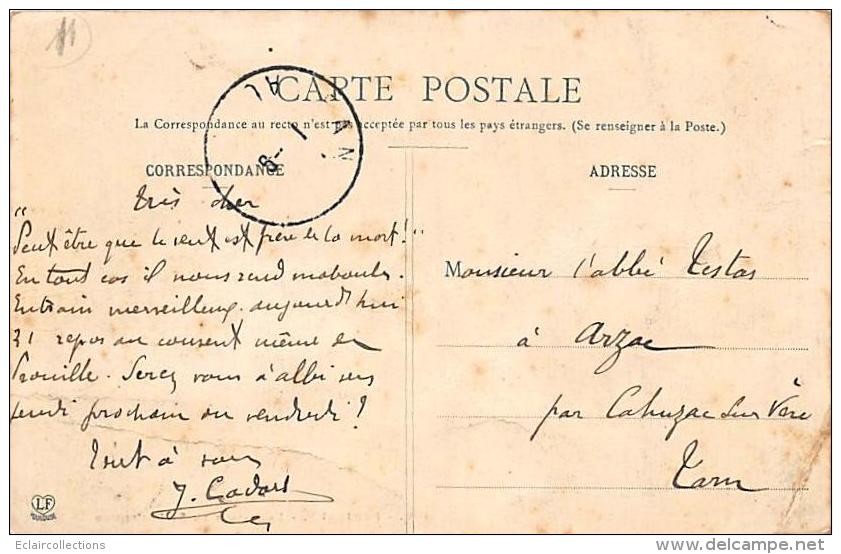 11
CARTE POSTALE
La Correspondance au recto n'est pas acceptée par tous les pays étrangers. (Se renseigner à la Poste.)
CORRESPONDANCE
ADRESSE
AL
1 -8
AN
très cher
"Peut être que le vent est frère de la mort!"
En tout cas il nous rend maboules.
Entrain merveilleux. aujourd'hui
31 repos au couvent même de
Prouille. Serez vous à albi vers
jeudi prochain ou vendredi?
Tout à vous
J.
Monsieur l'abbé Testas
à Arzac
par Cahuzac sur Vère
Tarn
LF
Eclaircollections
www.delcampe.net